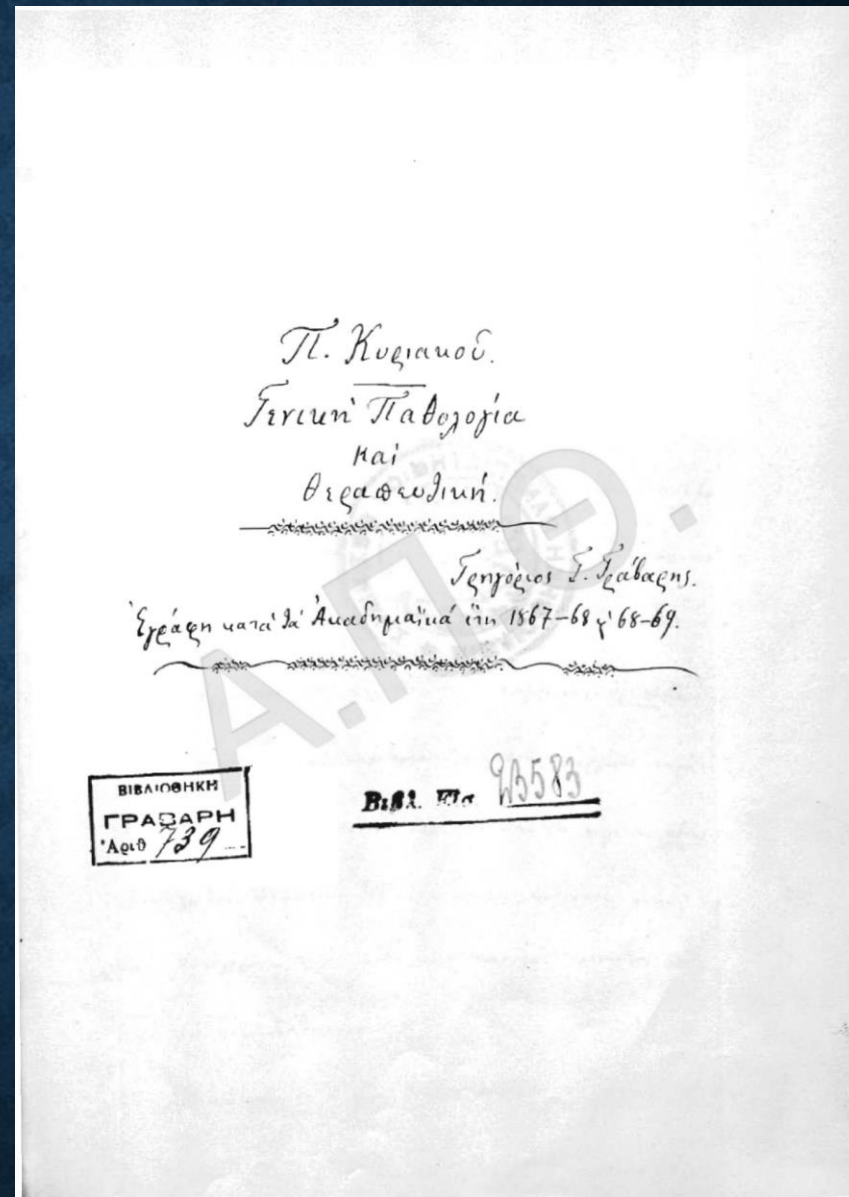 Π. Κυριακοῦ.
Γενικὴ Παθολογία
καὶ
Θεραπευτική.
Γρηγόριος Γ. Γράβαρης.
Ἐγράφη κατὰ τὰ Ἀκαδημαϊκὰ ἔτη 1867-68 ϗ 68-69.
Α.Π.Θ.
ΒΙΒΛΙΟΘΗΚΗ
ΓΡΑΒΑΡΗ
Ἀριθ 739
Βιβλ. 23583